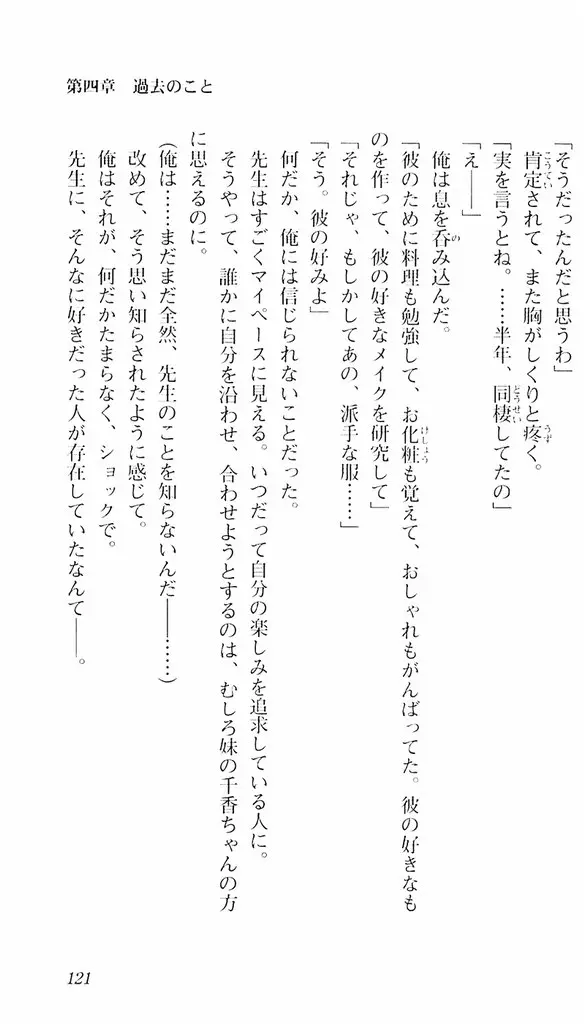 第四章　過去のこと
「そうだったんだと思うわ」
肯定されて、また胸がしくりと疼く。
「実を言うとね。……半年、同棲してたの」
「え――」
俺は息を呑み込んだ。
「彼のために料理も勉強して、お化粧も覚えて、おしゃれもがんばってた。彼の好きなも
のを作って、彼の好きなメイクを研究して」
「それじゃ、もしかしてあの、派手な服……」
「そう。彼の好みよ」
何だか、俺には信じられないことだった。
先生はすごくマイペースに見える。いつだって自分の楽しみを追求している人に。
そうやって、誰かに自分を沿わせ、合わせようとするのは、むしろ妹の千香ちゃんの方
に思えるのに。
（俺は……まだまだ全然、先生のことを知らないんだ――……）
改めて、そう思い知らされたように感じて。
俺はそれが、何だかたまらなく、ショックで。
先生に、そんなに好きだった人が存在していたなんて――。
121